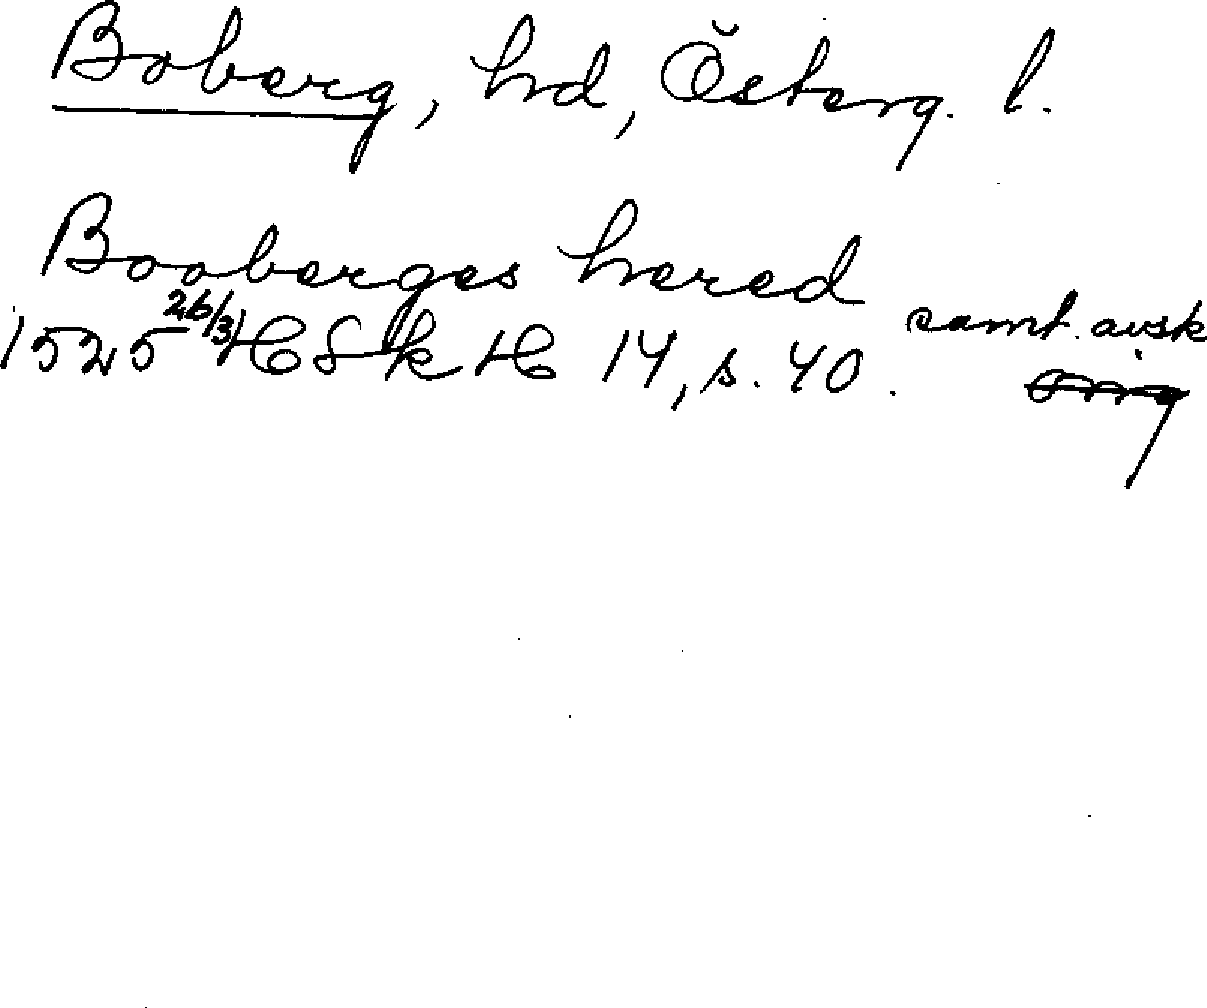 Boberg, hd, Österg. l.
Booberges hered
1525 26/3 HSkH 14, s. 40. samt. avsk
orig